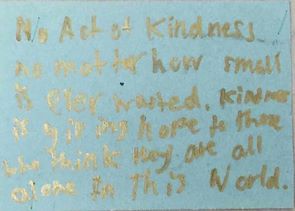 No Act of Kindness
no matter how small
is ever wasted. Kindness
is giving hope to those
who think they are all
alone In This World.